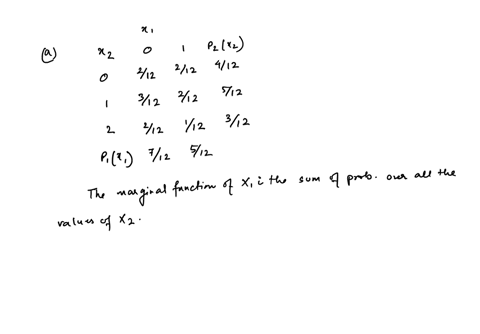 x1
(a) x2 0 1 P2(x2)
0 2/12 2/12 4/12
1 3/12 2/12 5/12
2 2/12 1/12 3/12
P1(x1) 7/12 5/12
The marginal function of X1 i the sum of prob. over all the
values of X2.